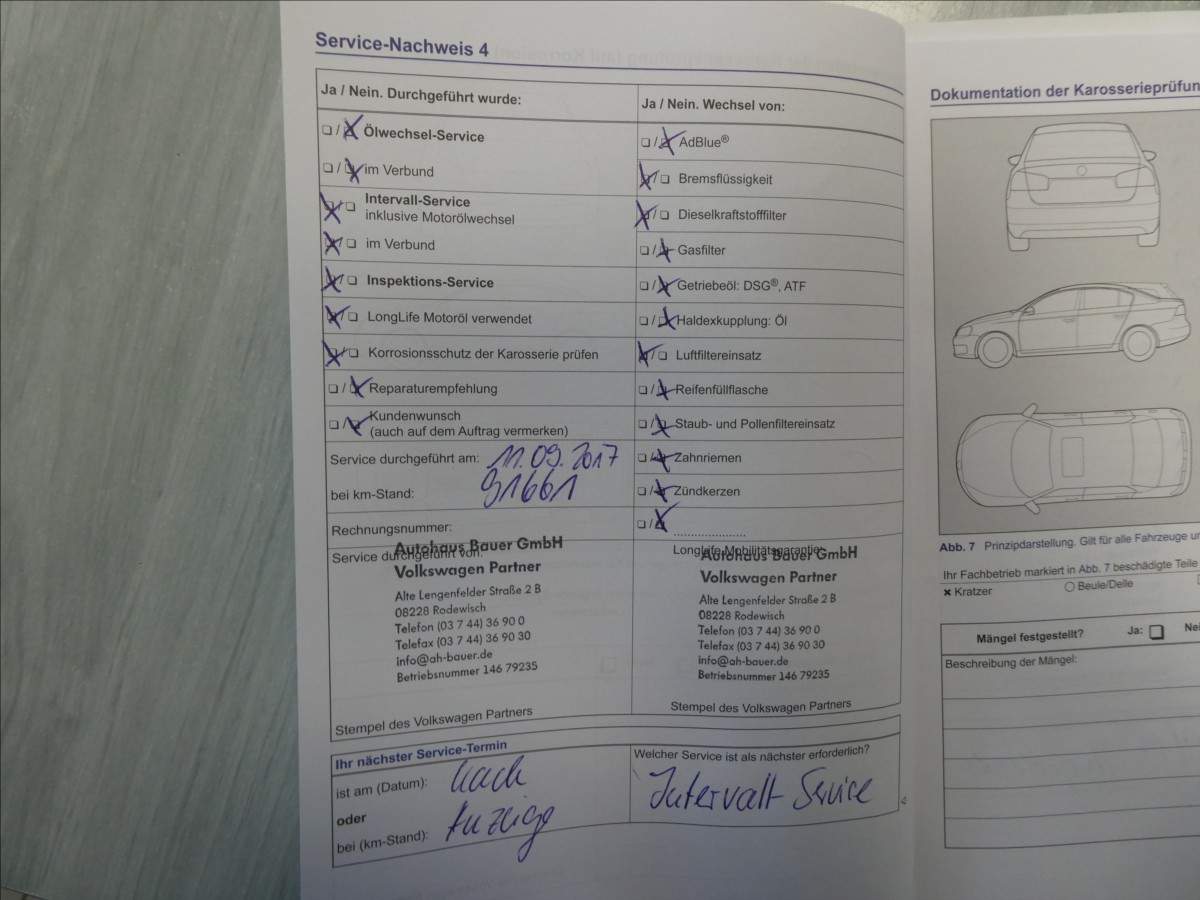 Service-Nachweis 4
Ja / Nein. Durchgeführt wurde:
Ölwechsel-Service
im Verbund
Intervall-Service
inklusive Motorölwechsel
im Verbund
Inspektions-Service
LongLife Motoröl verwendet
Korrosionsschutz der Karosserie prüfen
Reparaturempfehlung
Kundenwunsch
(auch auf dem Auftrag vermerken)
Service durchgeführt am: 11.09.2017
bei km-Stand: 91661
Rechnungsnummer:
Service durchgeführt von:
Autohaus Bauer GmbH
Volkswagen Partner
Alte Lengenfelder Straße 2 B
08228 Rodewisch
Telefon (03 7 44) 36 90 0
Telefax (03 7 44) 36 90 30
info@ah-bauer.de
Betriebsnummer 146 79235
Stempel des Volkswagen Partners
Ja / Nein. Wechsel von:
AdBlue®
Bremsflüssigkeit
Dieselkraftstofffilter
Gasfilter
Getriebeöl: DSG®, ATF
Haldexkupplung: Öl
Luftfiltereinsatz
Reifenfüllflasche
Staub- und Pollenfiltereinsatz
Zahnriemen
Zündkerzen
LongLife Mobilitätsgarantie:
Autohaus Bauer GmbH
Volkswagen Partner
Alte Lengenfelder Straße 2 B
08228 Rodewisch
Telefon (03 7 44) 36 90 0
Telefax (03 7 44) 36 90 30
info@ah-bauer.de
Betriebsnummer 146 79235
Stempel des Volkswagen Partners
Ihr nächster Service-Termin
ist am (Datum): nach
oder
bei (km-Stand): Anzeige
Welcher Service ist als nächster erforderlich?
Intervall-Service
Dokumentation der Karosserieprüfun
Abb. 7 Prinzipdarstellung. Gilt für alle Fahrzeuge un
Ihr Fachbetrieb markiert in Abb. 7 beschädigte Teile
✖ Kratzer ○ Beule/Delle
Mängel festgestellt? Ja: ❑ Nei
Beschreibung der Mängel: